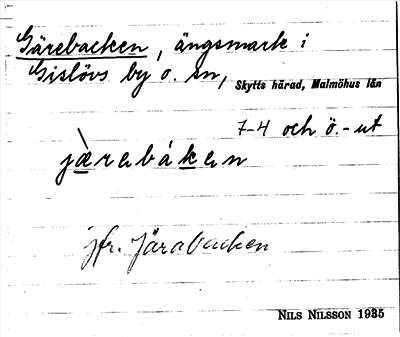 Gärebacken, ängsmark i
Gislövs by o. sn, Skytts härad, Malmöhus län
7-4 och ö.-ut
jæ̀rabákan
jfr. Järabacken
NILS NILSSON 1935